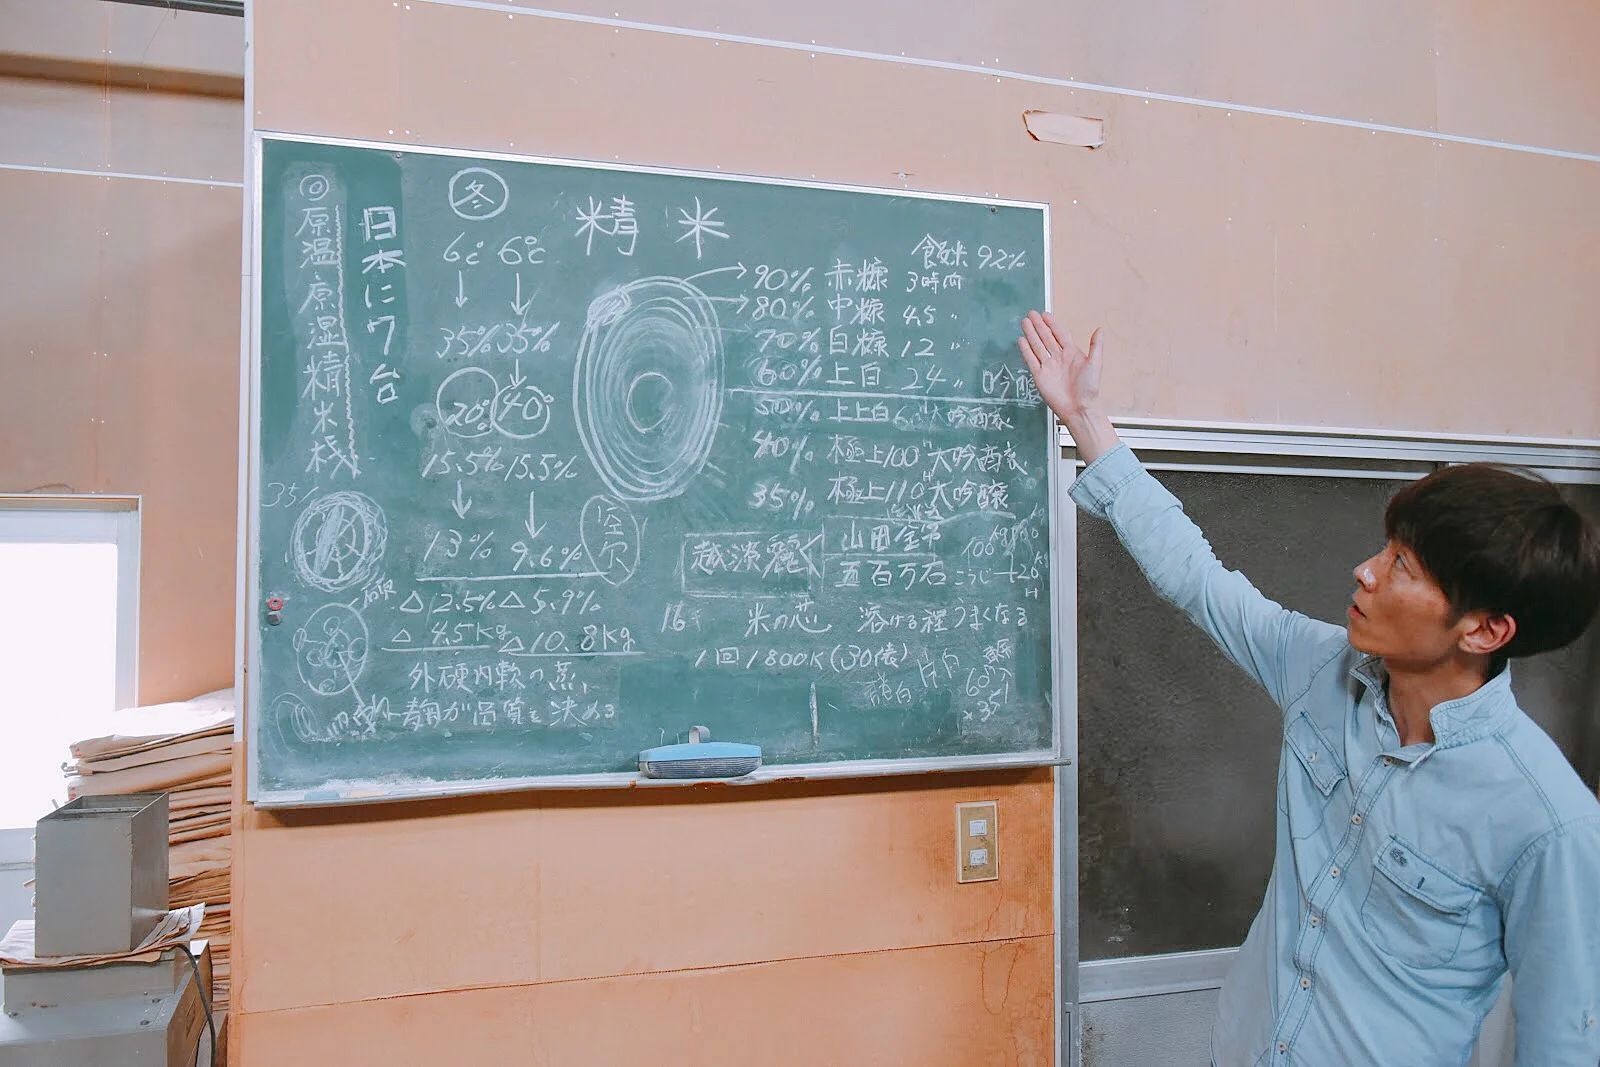 ◎原温原湿精米機
日本に7台
冬
6℃ 6℃
35% 35%
20℃ 40℃
15.5% 15.5%
13% 9.6%
△2.5% △5.9%
△4.5Kg △10.8Kg
外硬内軟の蒸し
麹が品質を決める
35%
精米
食飯米 92%
90% 赤糠 3時間
80% 中糠 4.5 〃
70% 白糠 12 〃
60% 上白 24 〃 吟醸
50% 上上白 60H 大吟醸
40% 極上 100H 大吟醸
35% 極上 110H 大吟醸
越淡麗
山田錦
五百万石
16
米の芯 溶ける程うまくなる
1回1800K(30俵)
蛋白